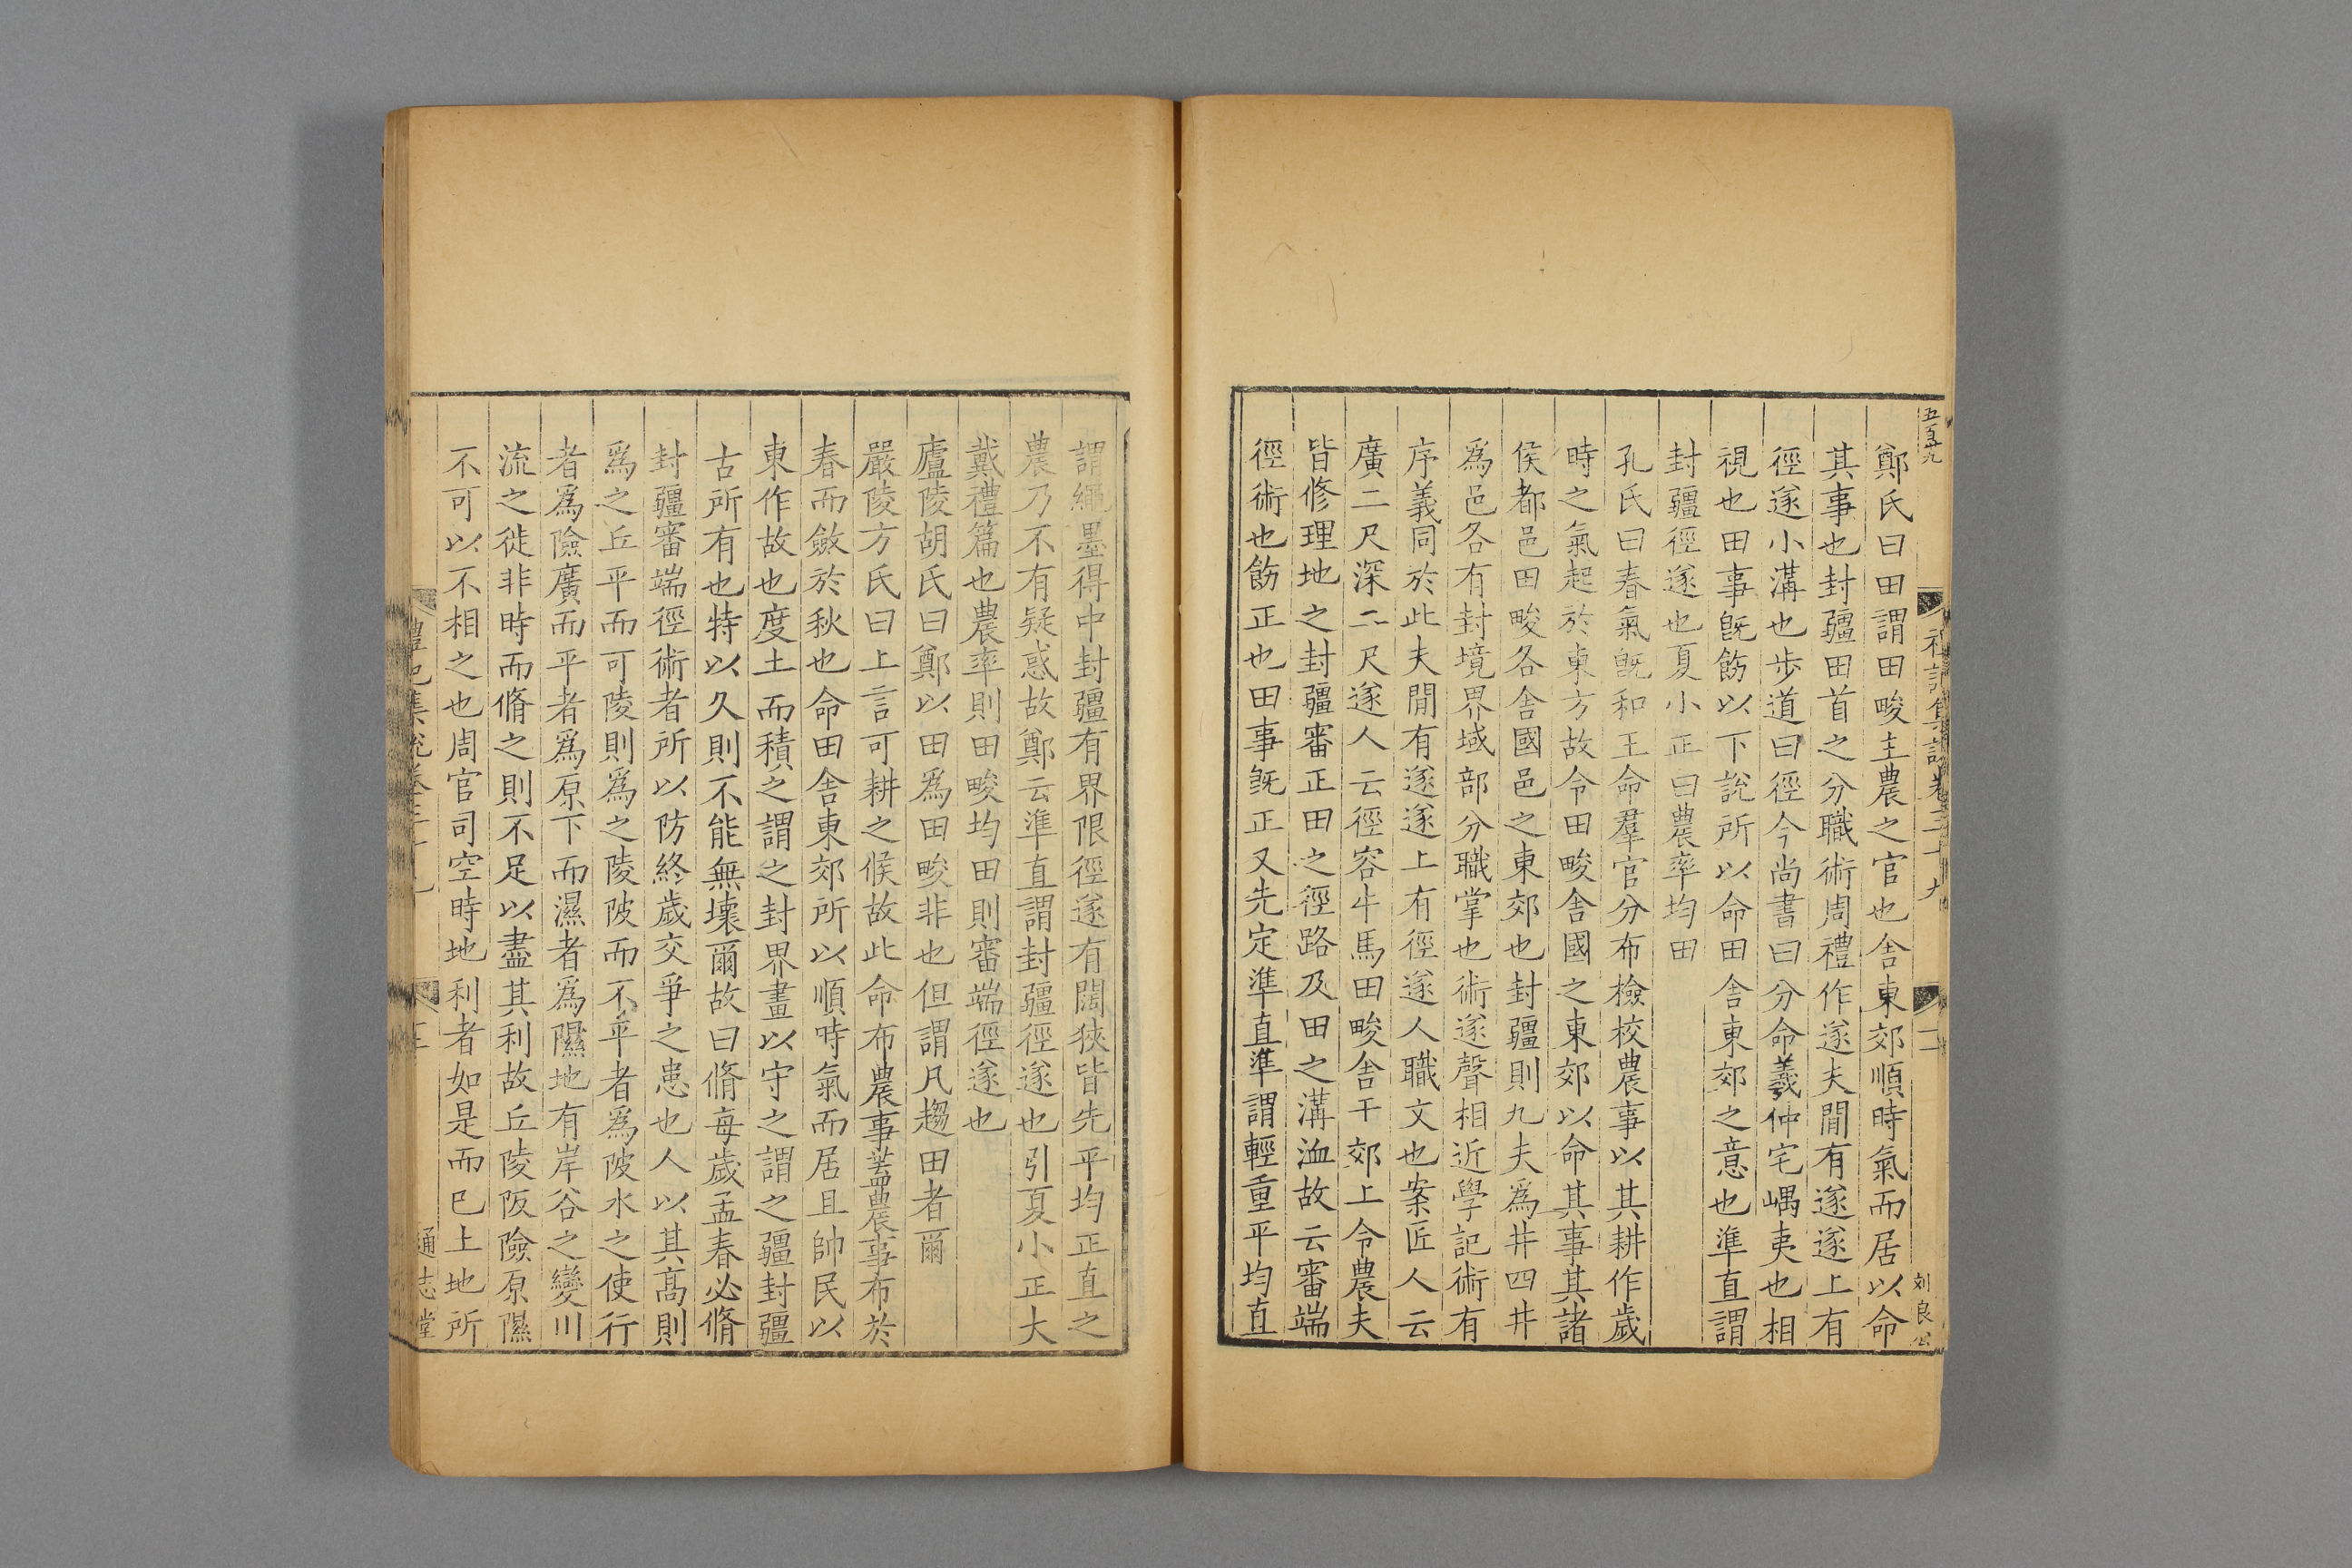 五百卅九
禮記集說卷三十九
二
刘良公
鄭氏曰田謂田畯主農之官也舍東郊順時氣而居以命
其事也封疆田首之分職術周禮作遂夫間有遂遂上有
徑遂小溝也步道曰徑今尚書曰分命羲仲宅嵎夷也相
視也田事旣飭以下說所以命田舍東郊之意也準直謂
封疆徑遂也夏小正曰農率均田
孔氏曰春氣旣和王命羣官分布檢校農事以其耕作歲
時之氣起於東方故令田畯舍國之東郊以命其事其諸
侯都邑田畯各舍國邑之東郊也封疆則九夫爲井四井
爲邑各有封境界域部分職掌也術遂聲相近學記術有
序義同於此夫閒有遂遂上有徑遂人職文也案匠人云
廣二尺深二尺遂人云徑容牛馬田畯舍于郊上令農夫
皆修理地之封疆審正田之徑路及田之溝洫故云審端
徑術也飭正也田事旣正又先定準直準謂輕重平均直
謂繩墨得中封疆有界限徑遂有闊狹皆先平均正直之
農乃不有疑惑故鄭云準直謂封疆徑遂也引夏小正大
戴禮篇也農率則田畯均田則審端徑遂也
廬陵胡氏曰鄭以田爲田畯非也但謂凡趨田者爾
嚴陵方氏曰上言可耕之候故此命布農事葢農事布於
春而斂於秋也命田舍東郊所以順時氣而居且帥民以
東作故也度土而積之謂之封界畫以守之謂之疆封疆
古所有也特以久則不能無壞爾故曰脩每歲孟春必脩
封疆審端徑術者所以防終歲交爭之患也人以其高則
爲之丘平而可陵則爲之陵陂而不平者爲陂水之使行
者爲險廣而平者爲原下而濕者爲隰地有岸谷之變川
流之徙非時而脩之則不足以盡其利故丘陵阪險原隰
不可以不相之也周官司空時地利者如是而巳土地所
禮記集說卷三十九
三
通志堂